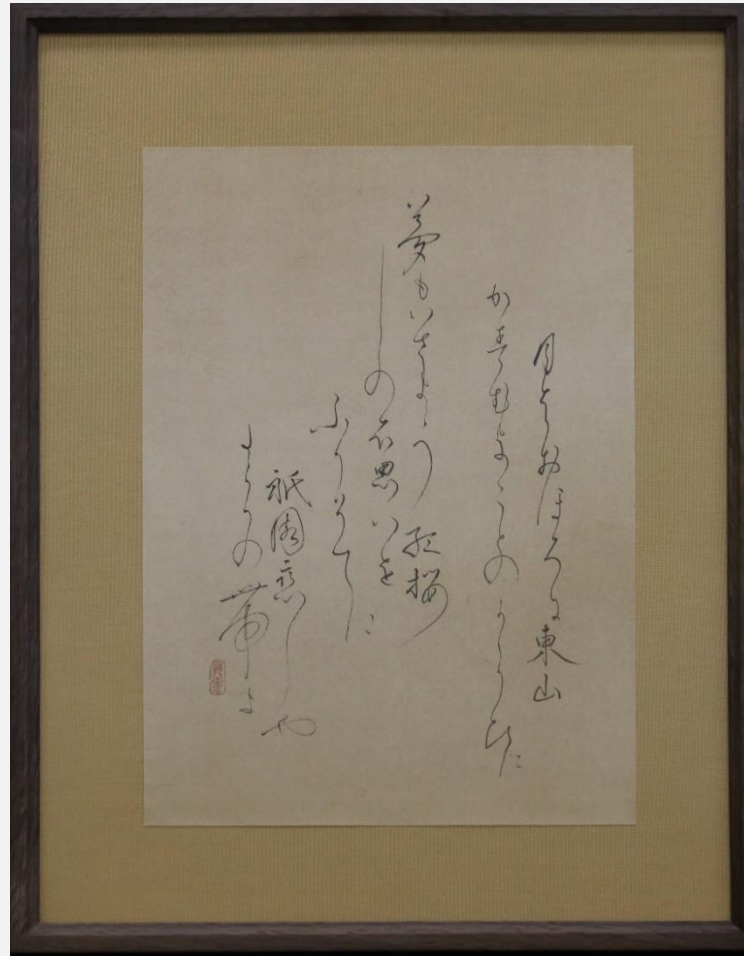 月はおほろに東山
かすむよことのかゝりひに
夢もいさよう紅桜
しの不思いを
ふりそてに
祇園恋しや
たらりの帯よ